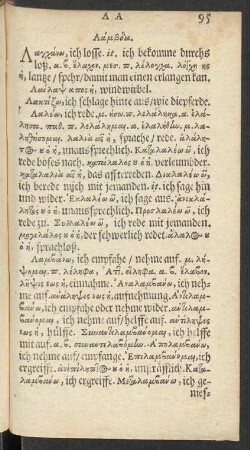 Λ Α 95
Λάμβδα.
Λαγχάνω, ich losse. it. ich bekomme durchs
loß, α. β. ἔλαχον, μεσ. π. λέλογχα. λόγχη ης
ἡ, lantze / spehr / damit man einen erlangen kan.
Λαῖλαψ απος ἡ, windwirbel.
Λακτίζω, ich schlage hinten aus / wie die pferde.
Λαλέω, ich rede, μ. ήσω, πρκ. λελάληκα. α. ἐλά-
λησα. παθ. π. λελάλημαι. α. ἐλαλήθην, μ. λα-
ληθήσομαι, λαλιὰ ᾶς ἡ, sprache / rede. ἀλάλη-
τος ου ὁ ἡ, unaussprechlich. Καταλαλέω ῶ, ich
rede böses nach. κατάλαλος ου ὁ ἡ. verleumbder.
καταλαλιὰ ᾶς ἡ, das affterreden. Διαλαλέω ῶ,
ich berede mich mit jemanden. it. ich sage hin
und wider. Ἐκλαλέω ῶ, ich sage aus. ἀνεκλά-
λητος ου ὁ ἡ. unaussprechlich. Προσλαλέω ῶ, ich
rede zu. Συλλαλέω ῶ, ich rede mit jemanden.
μογιλάλος ου ὁ ἡ, der schwerlich redet. ἄλαλος ου
ὁ ἡ, sprachloß.
Λαμβάνω, ich empfahe / nehme auf. μ. λή-
ψομαι. π. λέληφα, Ἀττ. εἴληφα. α. β. ἔλαβον,
λῆψις εως ἡ, einnahme. Ἀναλαμβάνω, ich neh-
me auf. ἀνάληψις εως ἡ, aufnehmung. Ἀπολαμ-
βάνω, ich empfahe oder nehme wider. ἀντιλαμ-
βάνομαι, ich nehme auf / helffe auf. ἀντίληψις
εως ἡ, hülffe. Συναντιλαμβάνομαι, ich helffe
mit auf. α. β. συναντιλάβωμαι. Ἀπολαμβάνω,
ich nehme auf / empfange. Ἐπιλαμβάνομαι, ich
ergreiffe. ἀνεπίληπτος ου ὁ ἡ, unsträfflich. Κατα-
λαμβάνω, ich ergreiffe. Μεταλαμβάνω, ich ge-
nies-